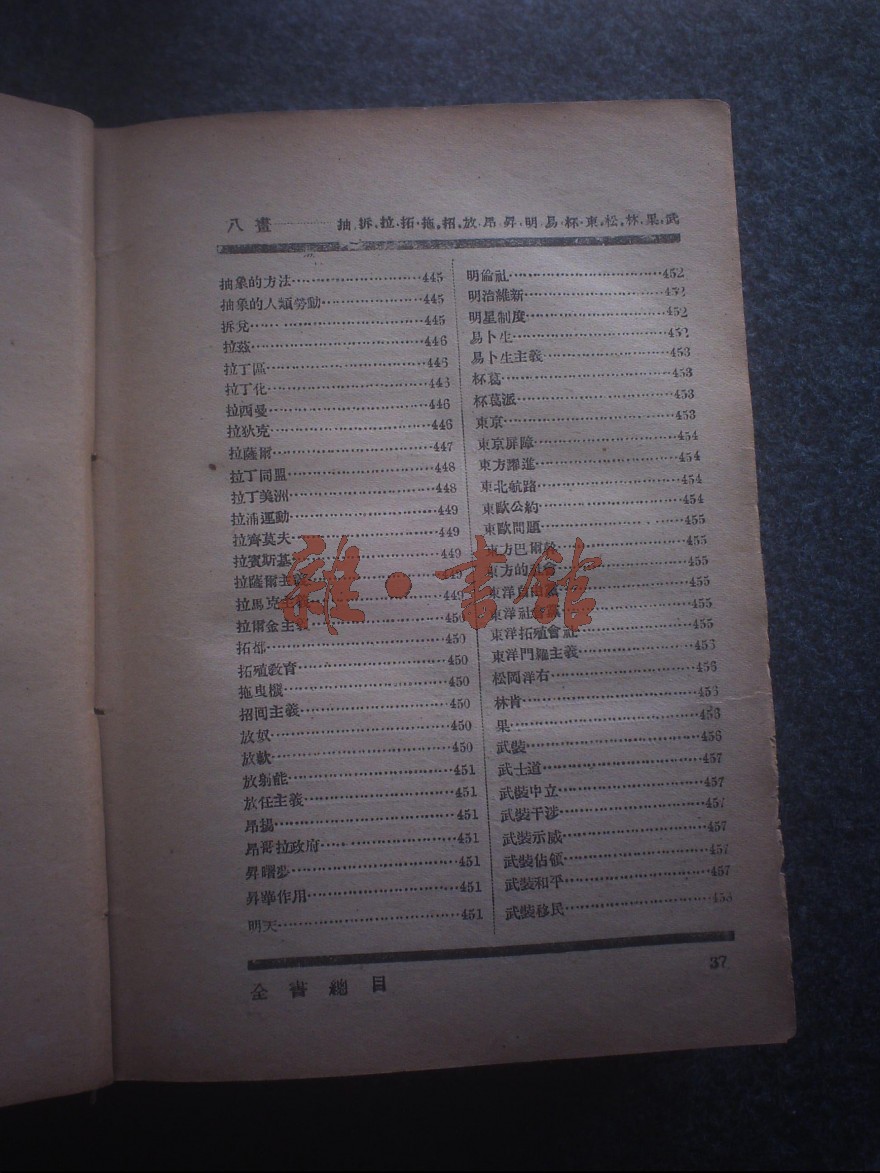 八畫………抽.拆.拉.拓.拖.招.放.昂.昇.明.易.杯.東.松.林.果.武
抽象的方法…445
抽象的人類勞動…445
拆兌…445
拉茲…446
拉丁區…446
拉丁化…446
拉西曼…446
拉狄克…446
拉薩爾…447
拉丁同盟…448
拉丁美洲…448
拉浦運動…449
拉齊莫夫…449
拉賓斯基…449
拉薩爾主義…449
拉馬克主義…449
拉爾金主義…450
拓郯…450
拓殖教育…450
拖曳機…450
招間主義…450
放奴…450
放款…450
放射能…451
放任主義…451
昂揚…451
昂哥拉政府…451
昇曙夢…451
昇華作用…451
明天…451
明倫社…452
明治維新…452
明星制度…452
易卜生…452
易卜生主義…453
杯葛…453
杯葛派…453
東京…453
東京屏障…454
東方躍進…454
東北航路…454
東歐公約…454
東歐問題…455
東方巴爾幹…455
東方的…會…455
東洋自由黨…455
東洋社會黨…455
東洋拓殖會社…455
東洋門羅主義…456
松岡洋右…456
林肯…456
果…456
武裝…456
武士道…457
武裝中立…457
武裝干涉…457
武裝示威…457
武裝佔領…457
武裝和平…457
武裝移民…458
全書總目
37
雜·書館